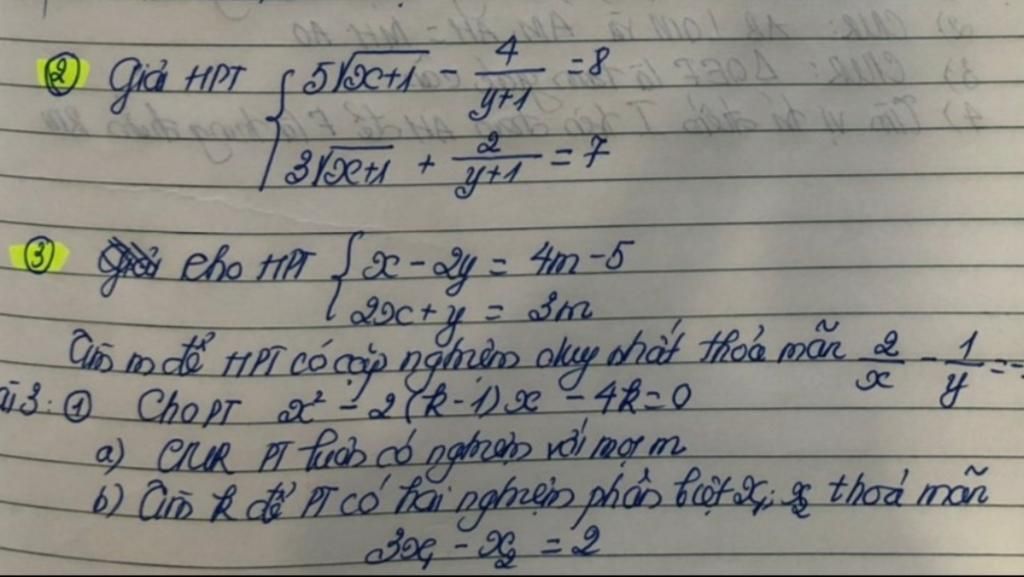 ② Giải HPT { 5√x+1 - 4/y+1 = 8
3√x+1 + 2/y+1 = 7
③ Cho HPT { x - 2y = 4m - 5
2x + y = 3m
Tìm m để HPT có cặp nghiệm duy nhất thoả mãn 2/x - 1/y =
3: ① Cho PT x² - 2(k-1)x - 4k = 0
a) CMR PT luôn có nghiệm với mọi m
b) Tìm k để PT có hai nghiệm phân biệt x₁; x₂ thoả mãn
3x₁ - x₂ = 2